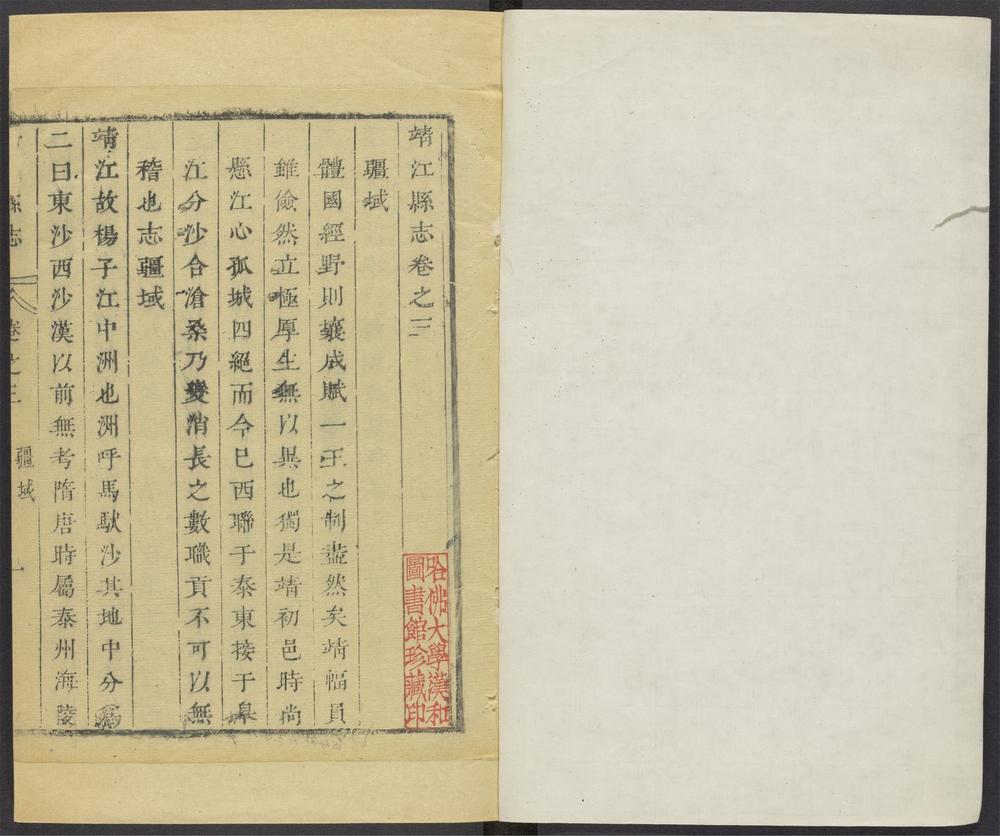 靖江縣志卷之三
疆域
體國經野則壤成賦一王之制盡然矣靖幅員
雖儉然立極厚生無以異也獨是靖初邑時尚
懸江心孤城四絕而今巳西聯于泰東接于臯
江分沙合滄桑乃變消長之數職貢不可以無
稽也志疆域
靖江故楊子江中洲也洲呼馬馱沙其地中分爲
二曰東沙西沙漢以前無考隋唐時屬泰州海陵
縣志
卷之三
疆域
一
哈佛大學漢和
圖書館珍藏印